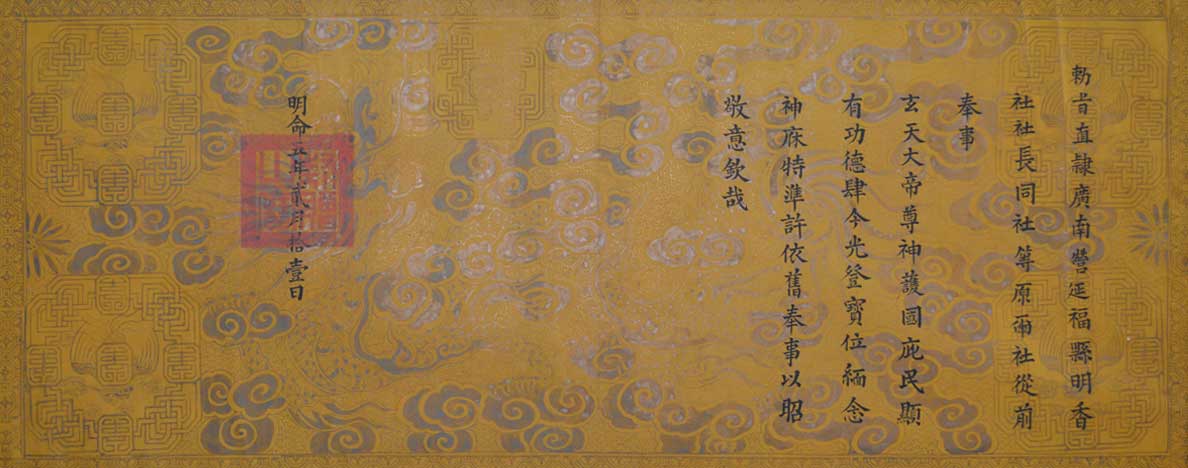 勅旨直隷廣南營延福縣明香
社社長同社等原爾社從前
奉事
玄天大帝尊神護國庇民顯
有功德肆今光登寶位緬念
神庥特準許依舊奉事以昭
敬意欽哉
明命五年貳月拾壹日